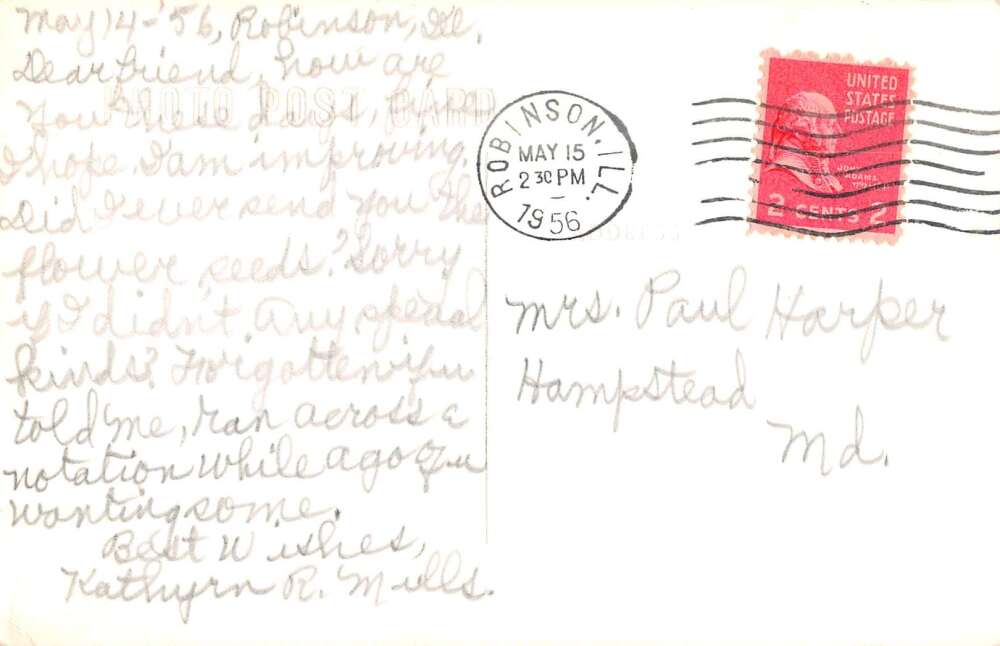 May 14-'56, Robinson, Ill.
Dear friend, how are
you these days, fine
I hope. I am improving.
Did I ever send you the
flower seeds? Sorry
if I didn't. Any special
kinds? Forgotten if you
told me, ran across a
notation while ago of u
wanting some.
Best Wishes,
Kathyrn R. Mills.
PHOTO POST CARD
ROBINSON, ILL.
MAY 15
2 30 PM
1956
UNITED
STATES
POSTAGE
JOHN
ADAMS
2 CENTS 2
ADDRESS
Mrs. Paul Harper
Hampstead
Md.